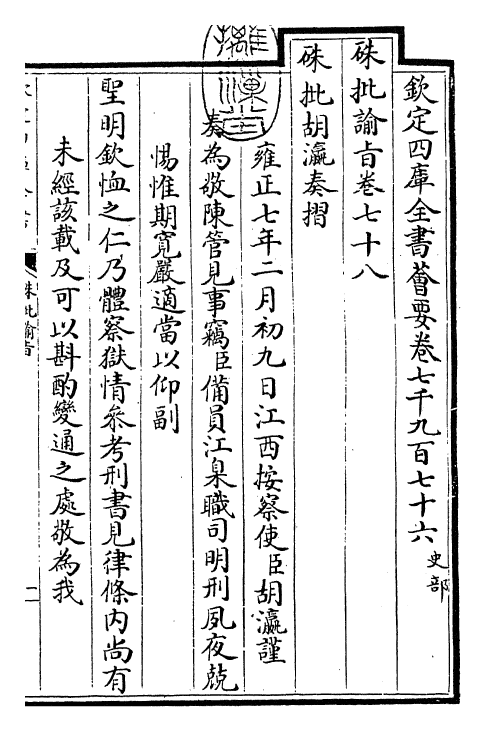 欽定四庫全書薈要卷七千九百七十六 史部
硃批諭旨卷七十八
硃批胡瀛奏摺
雍正七年二月初九日江西按察使臣胡瀛謹
奏為敬陳管見事竊臣備員江臬職司明刑夙夜兢
惕惟期寛嚴適當以仰副
聖明欽恤之仁乃體察獄情叅考刑書見律條内尚有
未經該載及可以斟酌變通之處敬為我
硃批諭旨